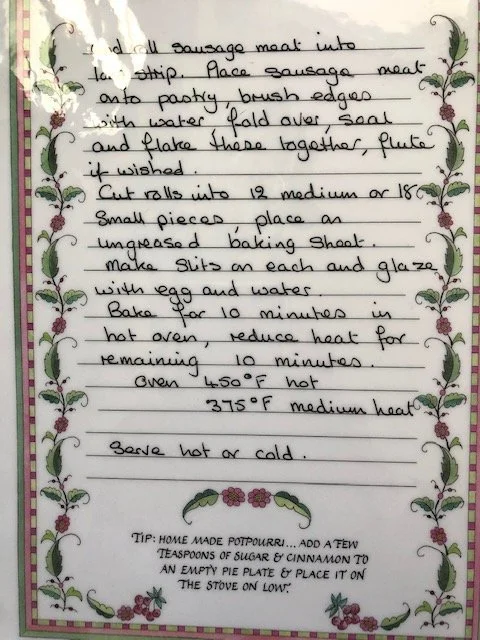 and roll sausage meat into
strip. Place sausage meat
onto pastry, brush edges
with water, fold over, seal
and flake these together, flute
if wished.
Cut rolls into 12 medium or 18
small pieces, place on
ungreased baking sheet.
make slits on each and glaze
with egg and water.
Bake for 10 minutes in
hot oven, reduce heat for
remaining 10 minutes.
Oven 450°F hot
375°F medium heat
Serve hot or cold.
TIP: HOME MADE POTPOURRI... ADD A FEW
TEASPOONS OF SUGAR & CINNAMON TO
AN EMPTY PIE PLATE & PLACE IT ON
THE STOVE ON LOW.